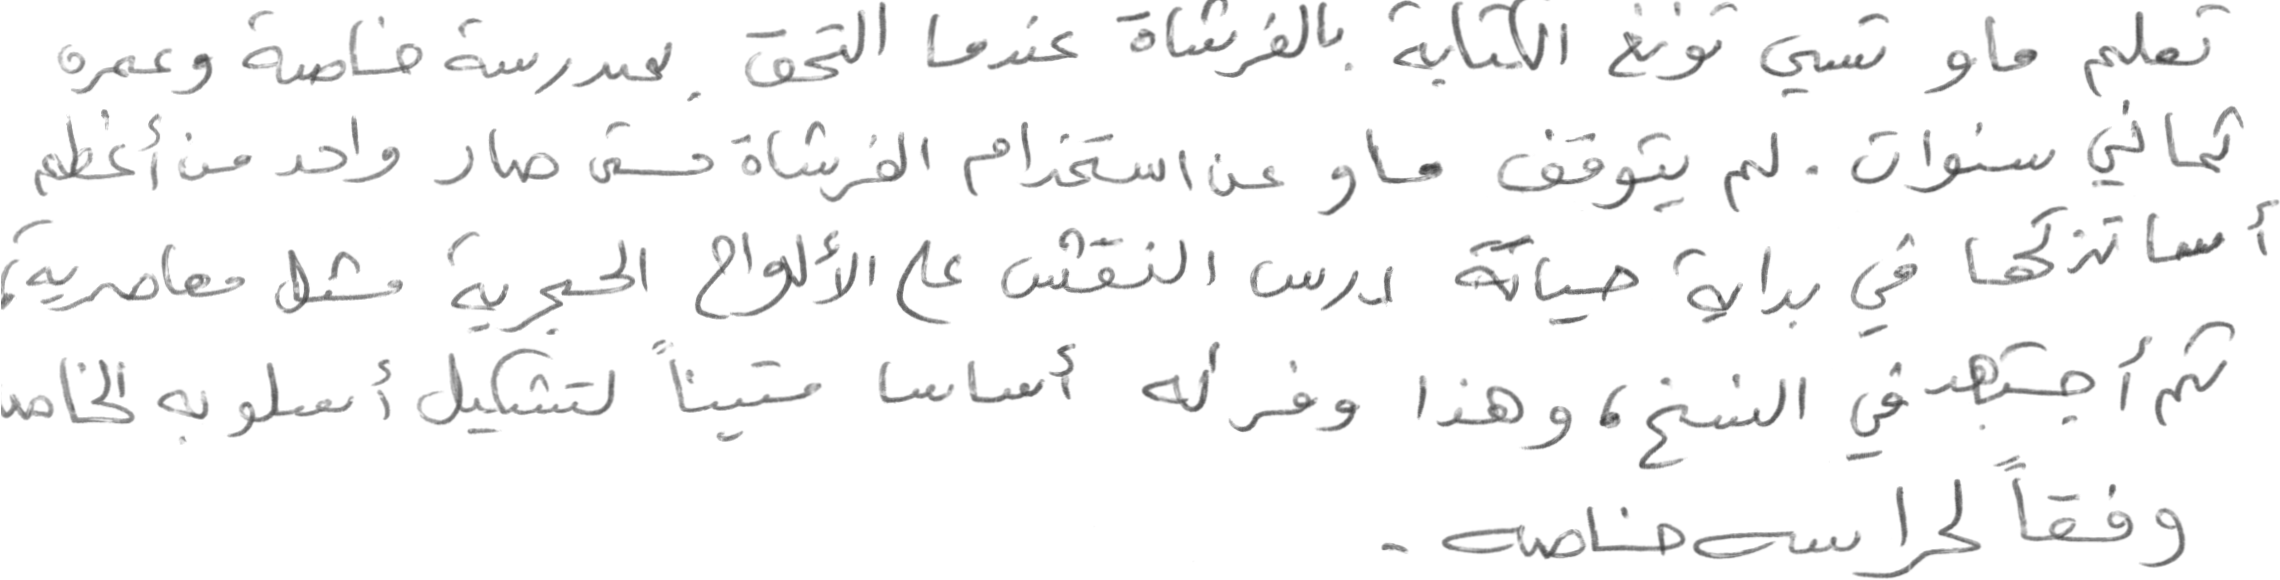 تعلم ماو تسي تونغ الكتابة بالفرشاة عندما التحق بمدرسة خاصة وعمره
ثماني سنوات. لم يتوقف ماو عن استخدام الفرشاة حتى صار واحد من أعظم
أساتذتها في بداية حياته درس النقش على الألواح الحجرية مثل معاصريه،
ثم أجتهد في النسخ، وهذا وفر له أساسا متيناً لتشكيل أسلوبه الخاص
وفقاً لدراسه خاصه.